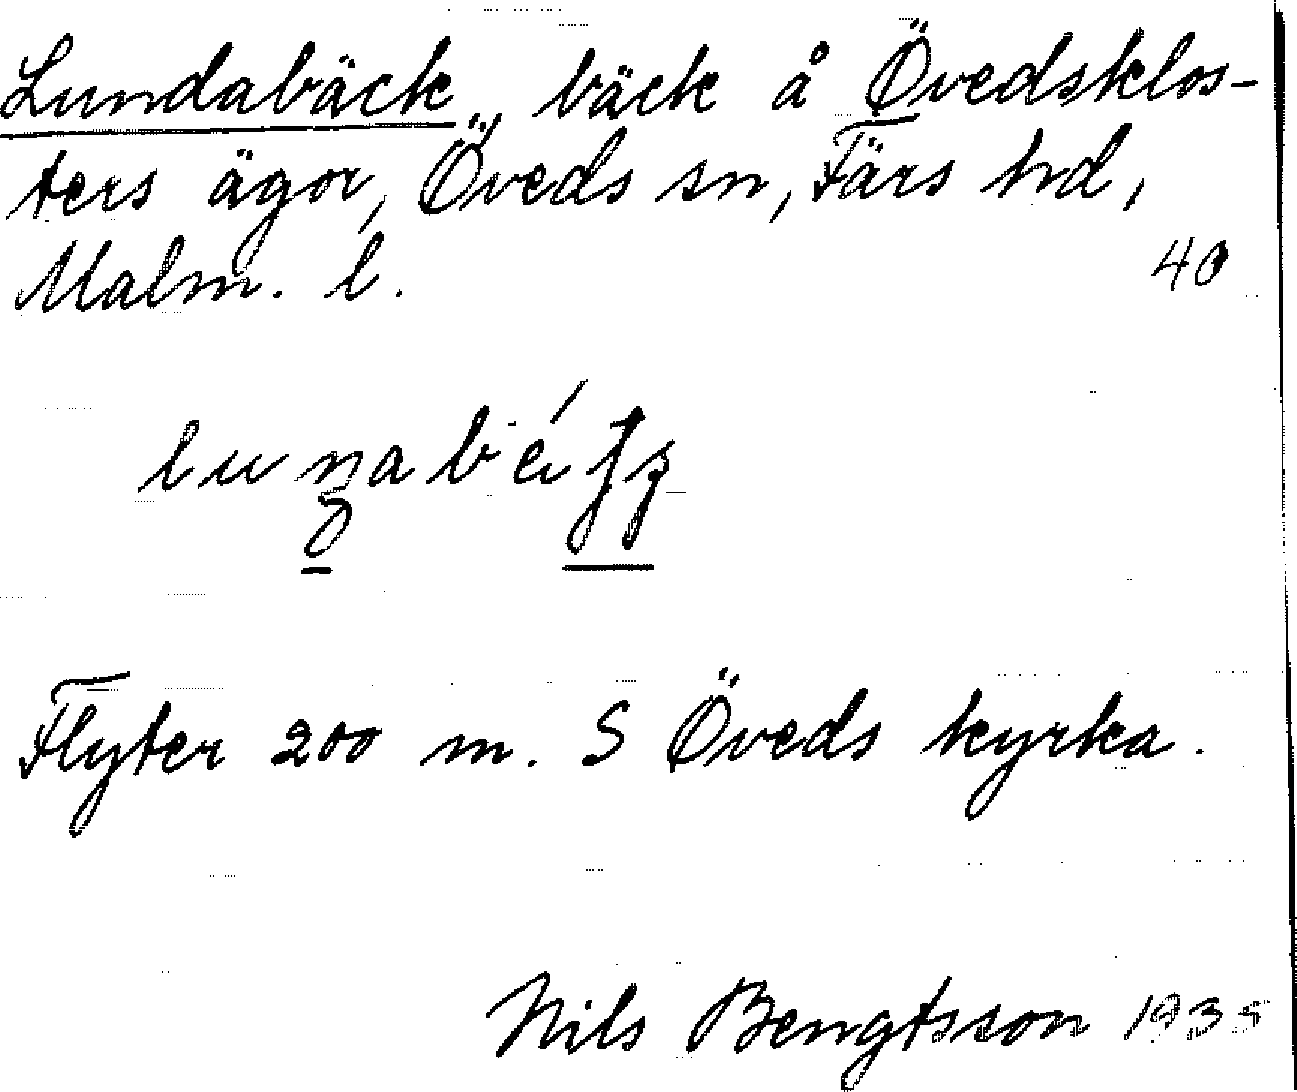 Lundabäck, bäck å Övedsklos-
ters ägor, Öveds sn, Färs hd,
Malm. l.
40
Flyter 200 m. S Öveds kyrka.
Nils Bengtsson 1935